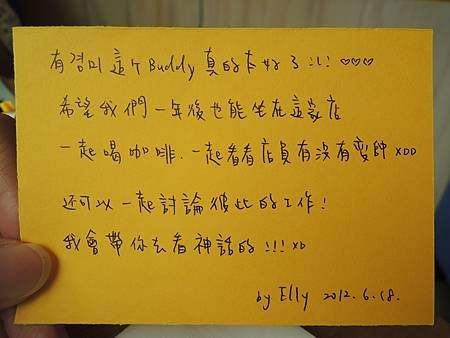 有경미這个Buddy真的太好了!!! ♡♡♡
希望我們一年後也能坐在這家店
一起喝咖啡.一起看看店員有沒有變帥 XDD
还可以一起討論彼此的工作!
我會帶你去看神話的!!! XD
by Elly 2012.6.18.